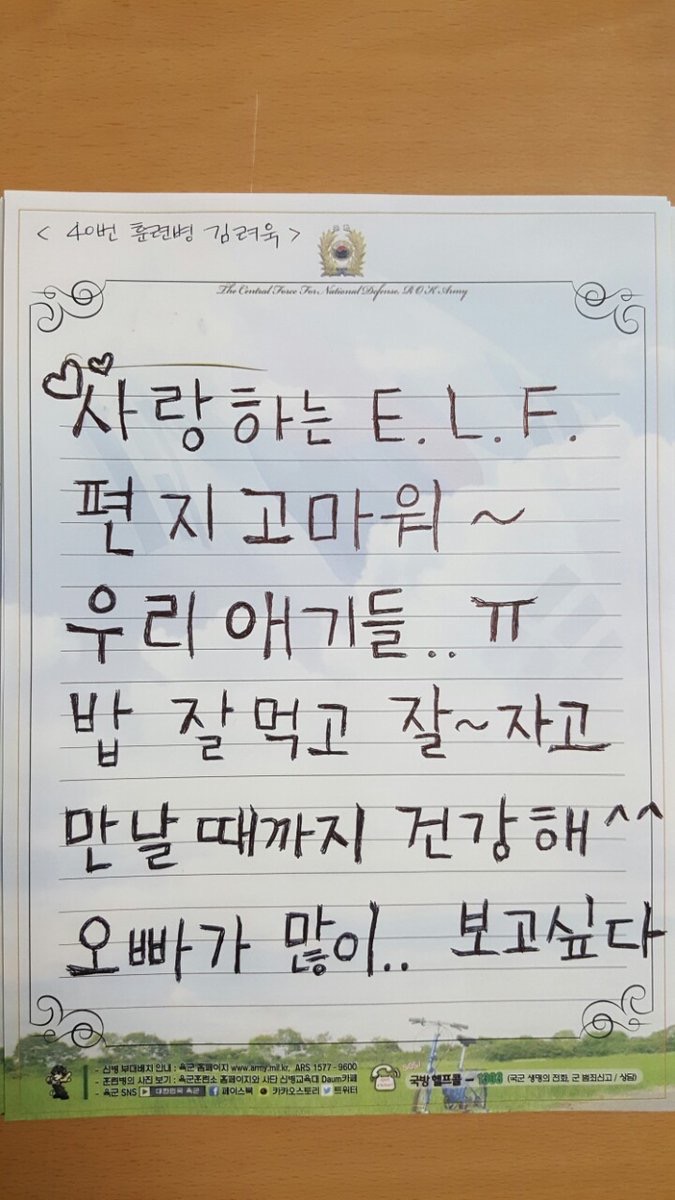 < 40번 훈련병 김려욱 >
The Central Force For National Defense, R O K Army
사랑하는 E.L.F.
편지 고마워~
우리 애기들..ㅠ
밥 잘먹고 잘~자고
만날 때까지 건강해^^
오빠가 많이.. 보고싶다
- 신병 부대배치 안내 : 육군 홈페이지 www.army.mil.kr, ARS 1577-9600
- 훈련병의 사진 보기 : 육군훈련소 홈페이지와 사단 신병교육대 Daum카페
- 육군 SNS 대한민국 육군 페이스북 카카오스토리 트위터
국방헬프콜 - 1303 (국군 생명의 전화, 군 범죄신고 / 상담)